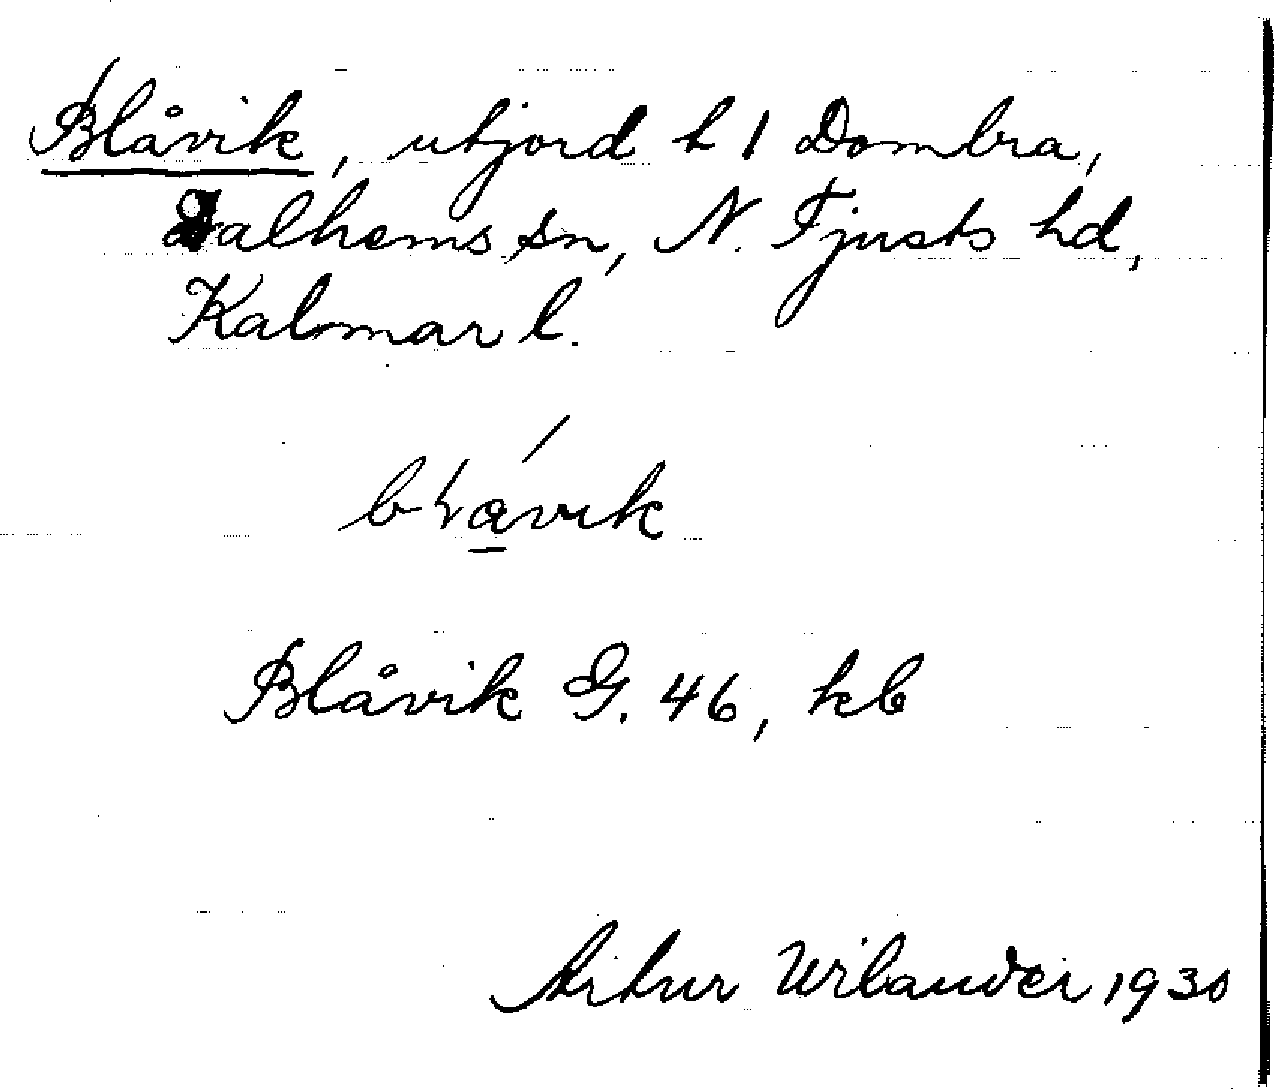 Blåvik, utjord t 1 Dombra,
Dalhems sn, N. Tjusts hd,
Kalmar l.
Blåvik G. 46, kb
Artur Wilander 1930